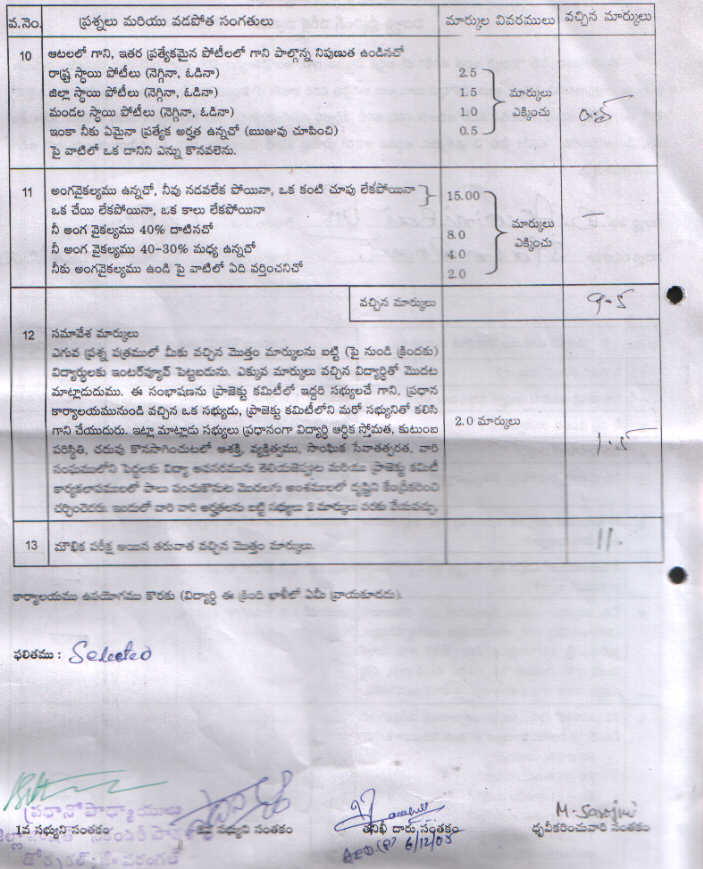 వ.నెం. ప్రశ్నలు మరియు వడపోత సంగతులు మార్కుల వివరములు వచ్చిన మార్కులు
10 ఆటలలో గాని, ఇతర ప్రత్యేకమైన పోటీలలో గాని పాల్గొన్న నిపుణత ఉండినచో
రాష్ట్ర స్థాయి పోటీలు (నెగ్గినా, ఓడినా) 2.5
జిల్లా స్థాయి పోటీలు (నెగ్గినా, ఓడినా) 1.5 మార్కులు
మండల స్థాయి పోటీలు (నెగ్గినా, ఓడినా) 1.0 ఎక్కించు 0.5
ఇంకా నీకు ఏమైనా ప్రత్యేక అర్హత ఉన్నచో (ఋజువు చూపించి) 0.5
పై వాటిలో ఒక దానిని ఎన్ను కొనవలెను.
11 అంగవైకల్యము ఉన్నచో, నీవు నడవలేక పోయినా, ఒక కంటి చూపు లేకపోయినా 15.00
ఒక చేయి లేకపోయినా, ఒక కాలు లేకపోయినా
నీ అంగ వైకల్యము 40% దాటినచో 8.0 మార్కులు
నీ అంగ వైకల్యము 40-30% మధ్య ఉన్నచో 4.0 ఎక్కించు
నీకు అంగవైకల్యము ఉండి పై వాటిలో ఏది వర్తించనిచో 2.0
వచ్చిన మార్కులు 9.5
12 సమావేశ మార్కులు
ఎగువ ప్రశ్న పత్రములో మీకు వచ్చిన మొత్తం మార్కులను బట్టి (పై నుండి క్రిందకు)
విద్యార్థులకు ఇంటర్‌వ్యూన్ పెట్టబడును. ఎక్కువ మార్కులు వచ్చిన విద్యార్థితో మొదట
మాట్లాడుదుము. ఈ సంభాషణను ప్రాజెక్టు కమిటీలో ఇద్దరి సభ్యులచే గాని, ప్రధాన
కార్యాలయమునుండి వచ్చిన ఒక సభ్యుడు, ప్రాజెక్టు కమిటీలోని మరో సభ్యునితో కలిసి 2.0 మార్కులు
గాని చేయుదురు. ఇట్లా మాట్లాడు సభ్యులు ప్రధానంగా విద్యార్థి ఆర్థిక స్తోమత, కుటుంబ 1.5
పరిస్థితి, చదువు కొనసాగించుటలో ఆశక్తి, వ్యక్తిత్వము, సాంఘిక సేవాతత్పరత, వారి
సంఘములోని పెద్దలకు విద్యా అవసరమును తెలియజెప్పుట మరియు ప్రాజెక్టు కమిటీ
కార్యకలాపములలో పాలు పంచుకొనుట మొదలగు అంశములలో దృష్టిని కేంద్రీకరించి
చర్చించెదరు. ఇందులో వారి వారి అర్హతలను బట్టి సభ్యులు 2 మార్కులు వరకు వేయవచ్చు.
13 మౌఖిక పరీక్ష అయిన తరువాత వచ్చిన మొత్తం మార్కులు. 11.
కార్యాలయము ఉపయోగము కొరకు (విద్యార్థి ఈ క్రింది ఖాళీలో ఏమీ వ్రాయకూడదు).
ఫలితము : Selected
ప్రధానోపాధ్యాయులు
M. Sarojini
1వ సభ్యుని సంతకం 2వ సభ్యుని సంతకం తనిఖీ దారు సంతకం ధృవీకరించువారి సంతకం
6/12/05